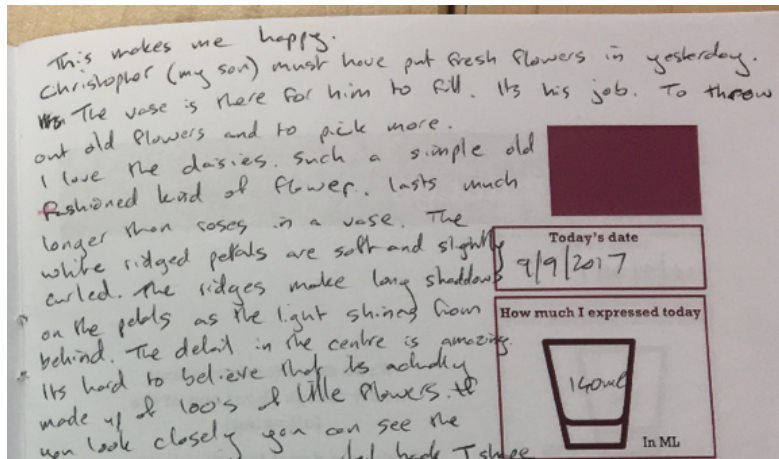 This makes me happy.
Christopher (my son) must have put fresh flowers in yesterday.
The vase is there for him to fill. Its his job. To throw
out old flowers and to pick more.
I love the daisies. Such a simple old
fashioned kind of flower. lasts much
longer than roses in a vase. The
white ridged petals are soft and slightly
curled. The ridges make long shaddows
on the petals as the light shines from
behind. The detail in the centre is amazing.
Its hard to believe that its actually
made up of 100's of little flowers. If
you look closely you can see the
back T shape
Today's date
9/9/2017
How much I expressed today
140ml
In ML